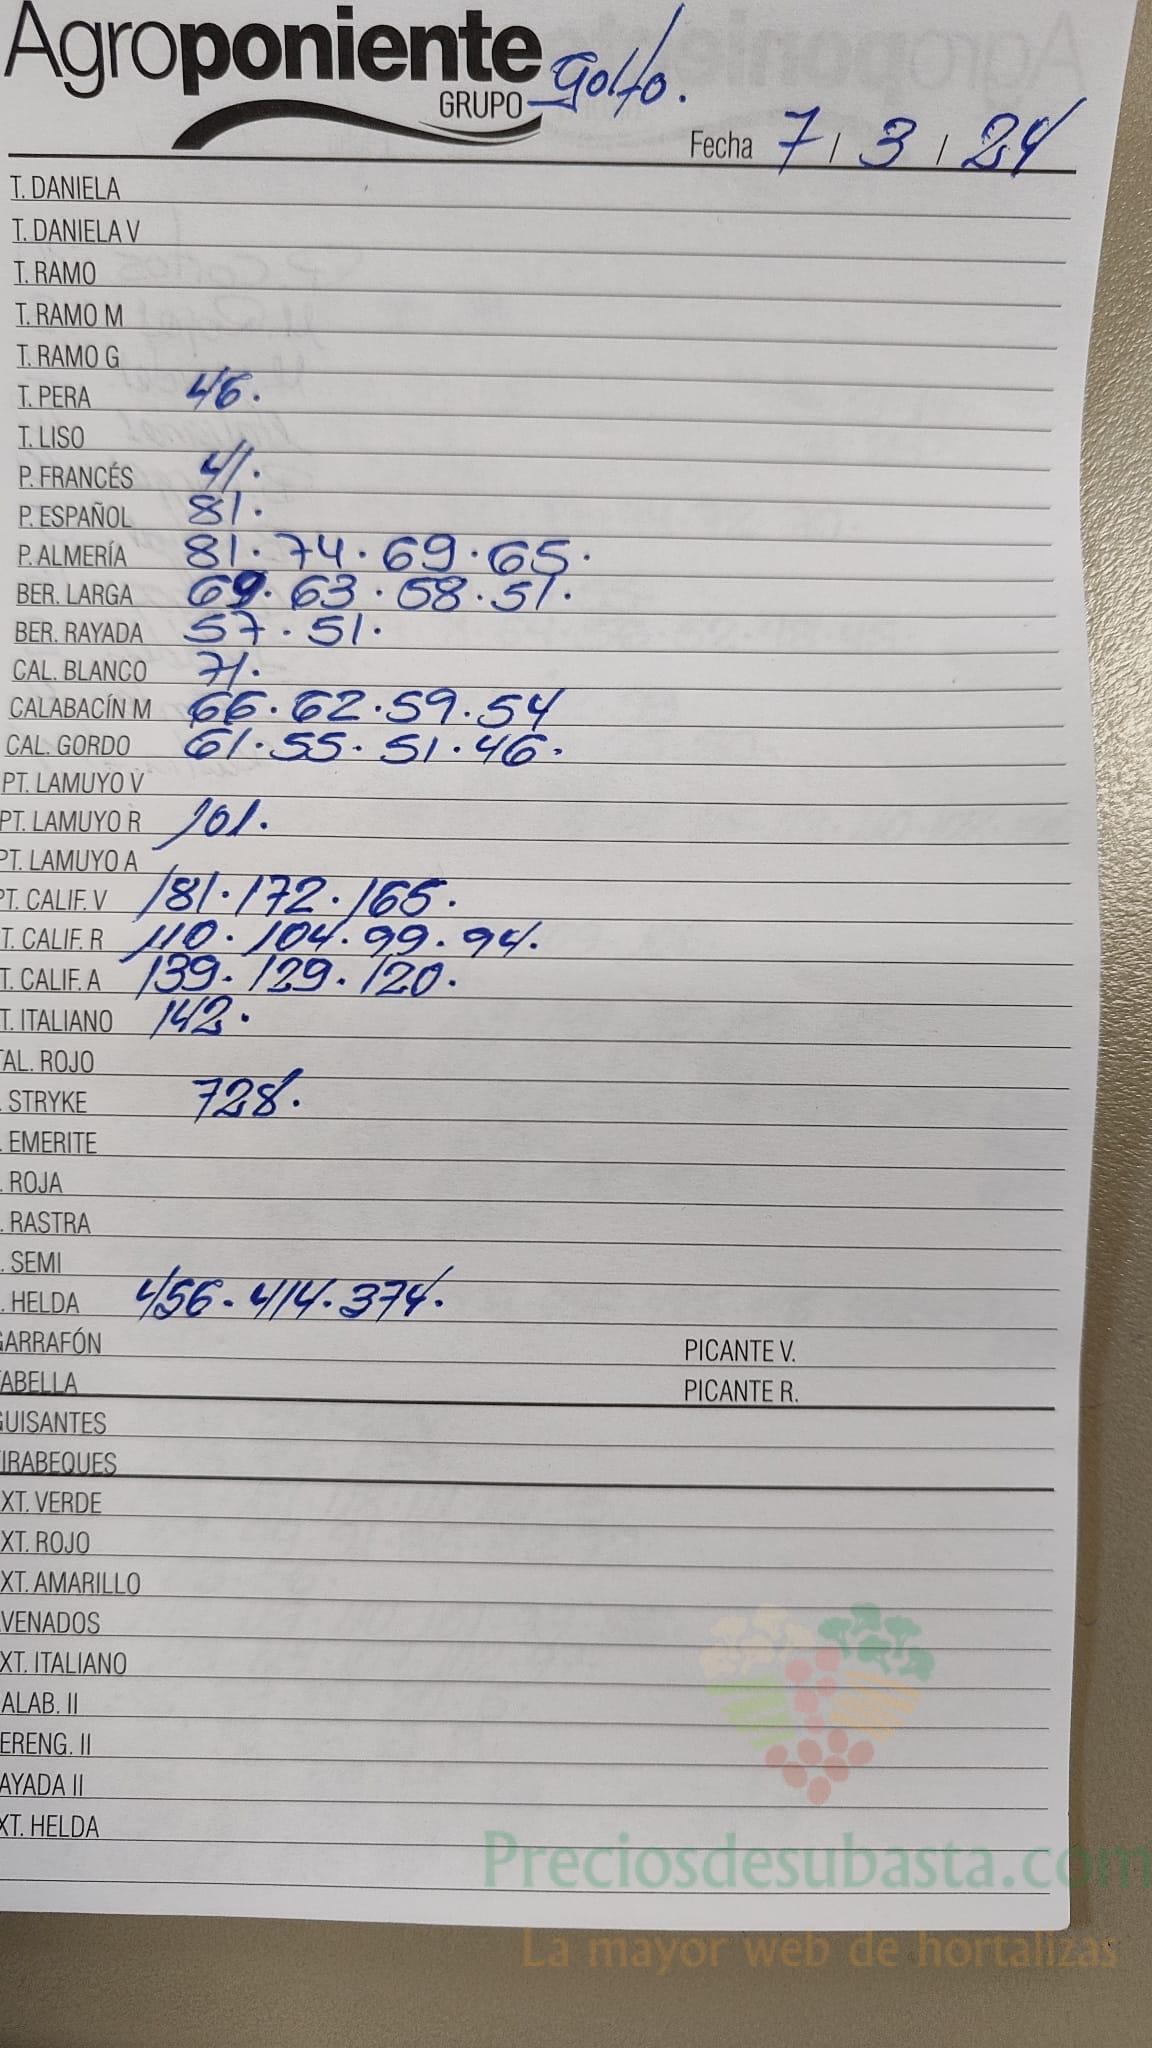 Agroponiente
GRUPO Golfo.
Fecha 7 / 3 / 24
T. DANIELA
T. DANIELA V
T. RAMO
T. RAMO M
T. RAMO G
T. PERA 46.
T. LISO
P. FRANCÉS 41.
P. ESPAÑOL 81.
P. ALMERÍA 81. 74. 69. 65.
BER. LARGA 69. 63. 58. 51.
BER. RAYADA 57. 51.
CAL. BLANCO 71.
CALABACÍN M 66. 62. 59. 54
CAL. GORDO 61. 55. 51. 46.
PT. LAMUYO V
PT. LAMUYO R 101.
PT. LAMUYO A
PT. CALIF. V 181. 172. 165.
T. CALIF. R 110. 104. 99. 94.
T. CALIF. A 139. 129. 120.
T. ITALIANO 142.
AL. ROJO
. STRYKE 728.
. EMERITE
. ROJA
. RASTRA
. SEMI
. HELDA 456. 414. 374.
GARRAFÓN PICANTE V.
ABELLA PICANTE R.
GUISANTES
IRABEQUES
XT. VERDE
XT. ROJO
XT. AMARILLO
VENADOS
XT. ITALIANO
ALAB. II
ERENG. II
AYADA II
XT. HELDA
Preciosdesubasta.com
La mayor web de hortalizas